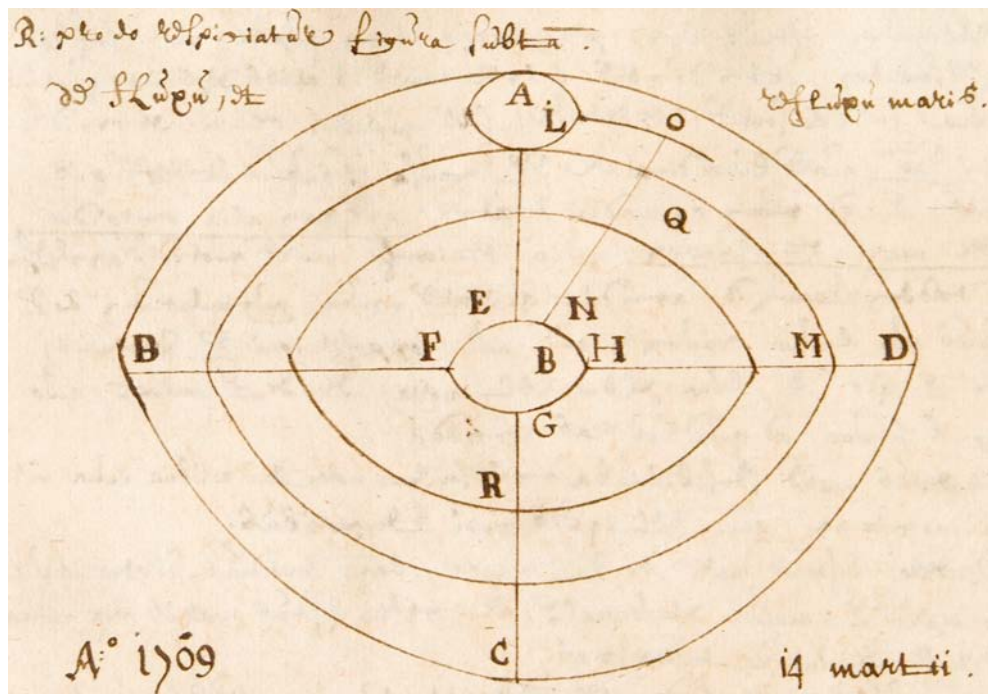 R: pro do respiciatur figura subta.
de fluxu, et refluxu maris.
A L O
Q
E N
B F B H M D
G
R
C
A:o 1709 14 martii.